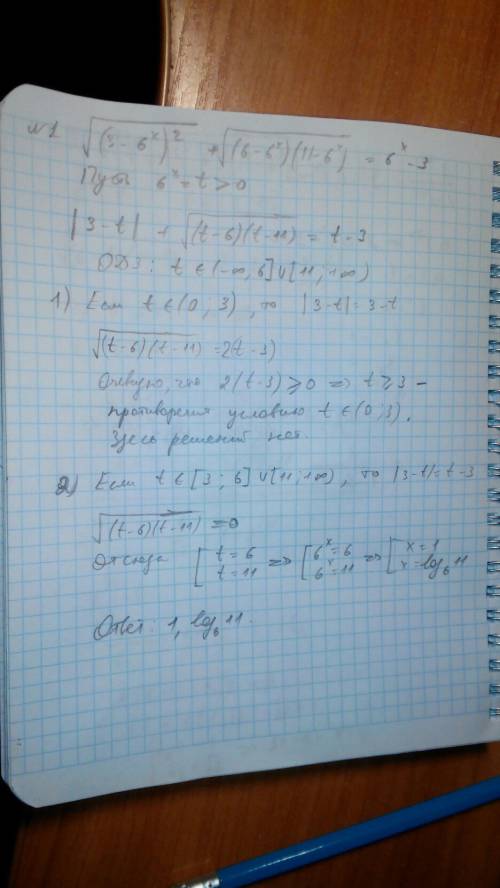 №1 √((3-6^x)^2) + √((6-6^x)(11-6^x)) = 6^x-3
Пусть 6^x = t > 0
|3-t| + √((t-6)(t-11)) = t-3
ОДЗ: t ∈ (-∞, 6] ∪ [11; +∞)
1) Если t ∈ (0, 3), то |3-t| = 3-t
√((t-6)(t-11)) = 2(t-3)
Очевидно, что 2(t-3) ≥ 0 => t ≥ 3 -
противоречия условию t ∈ (0; 3).
Здесь решений нет.
2) Если t ∈ [3; 6] ∪ [11; +∞), то |3-t| = t-3
√((t-6)(t-11)) = 0
Отсюда [t=6 t=11 => [6^x=6 6^x=11 => [x=1 x=log₆11
Ответ: 1, log₆11.